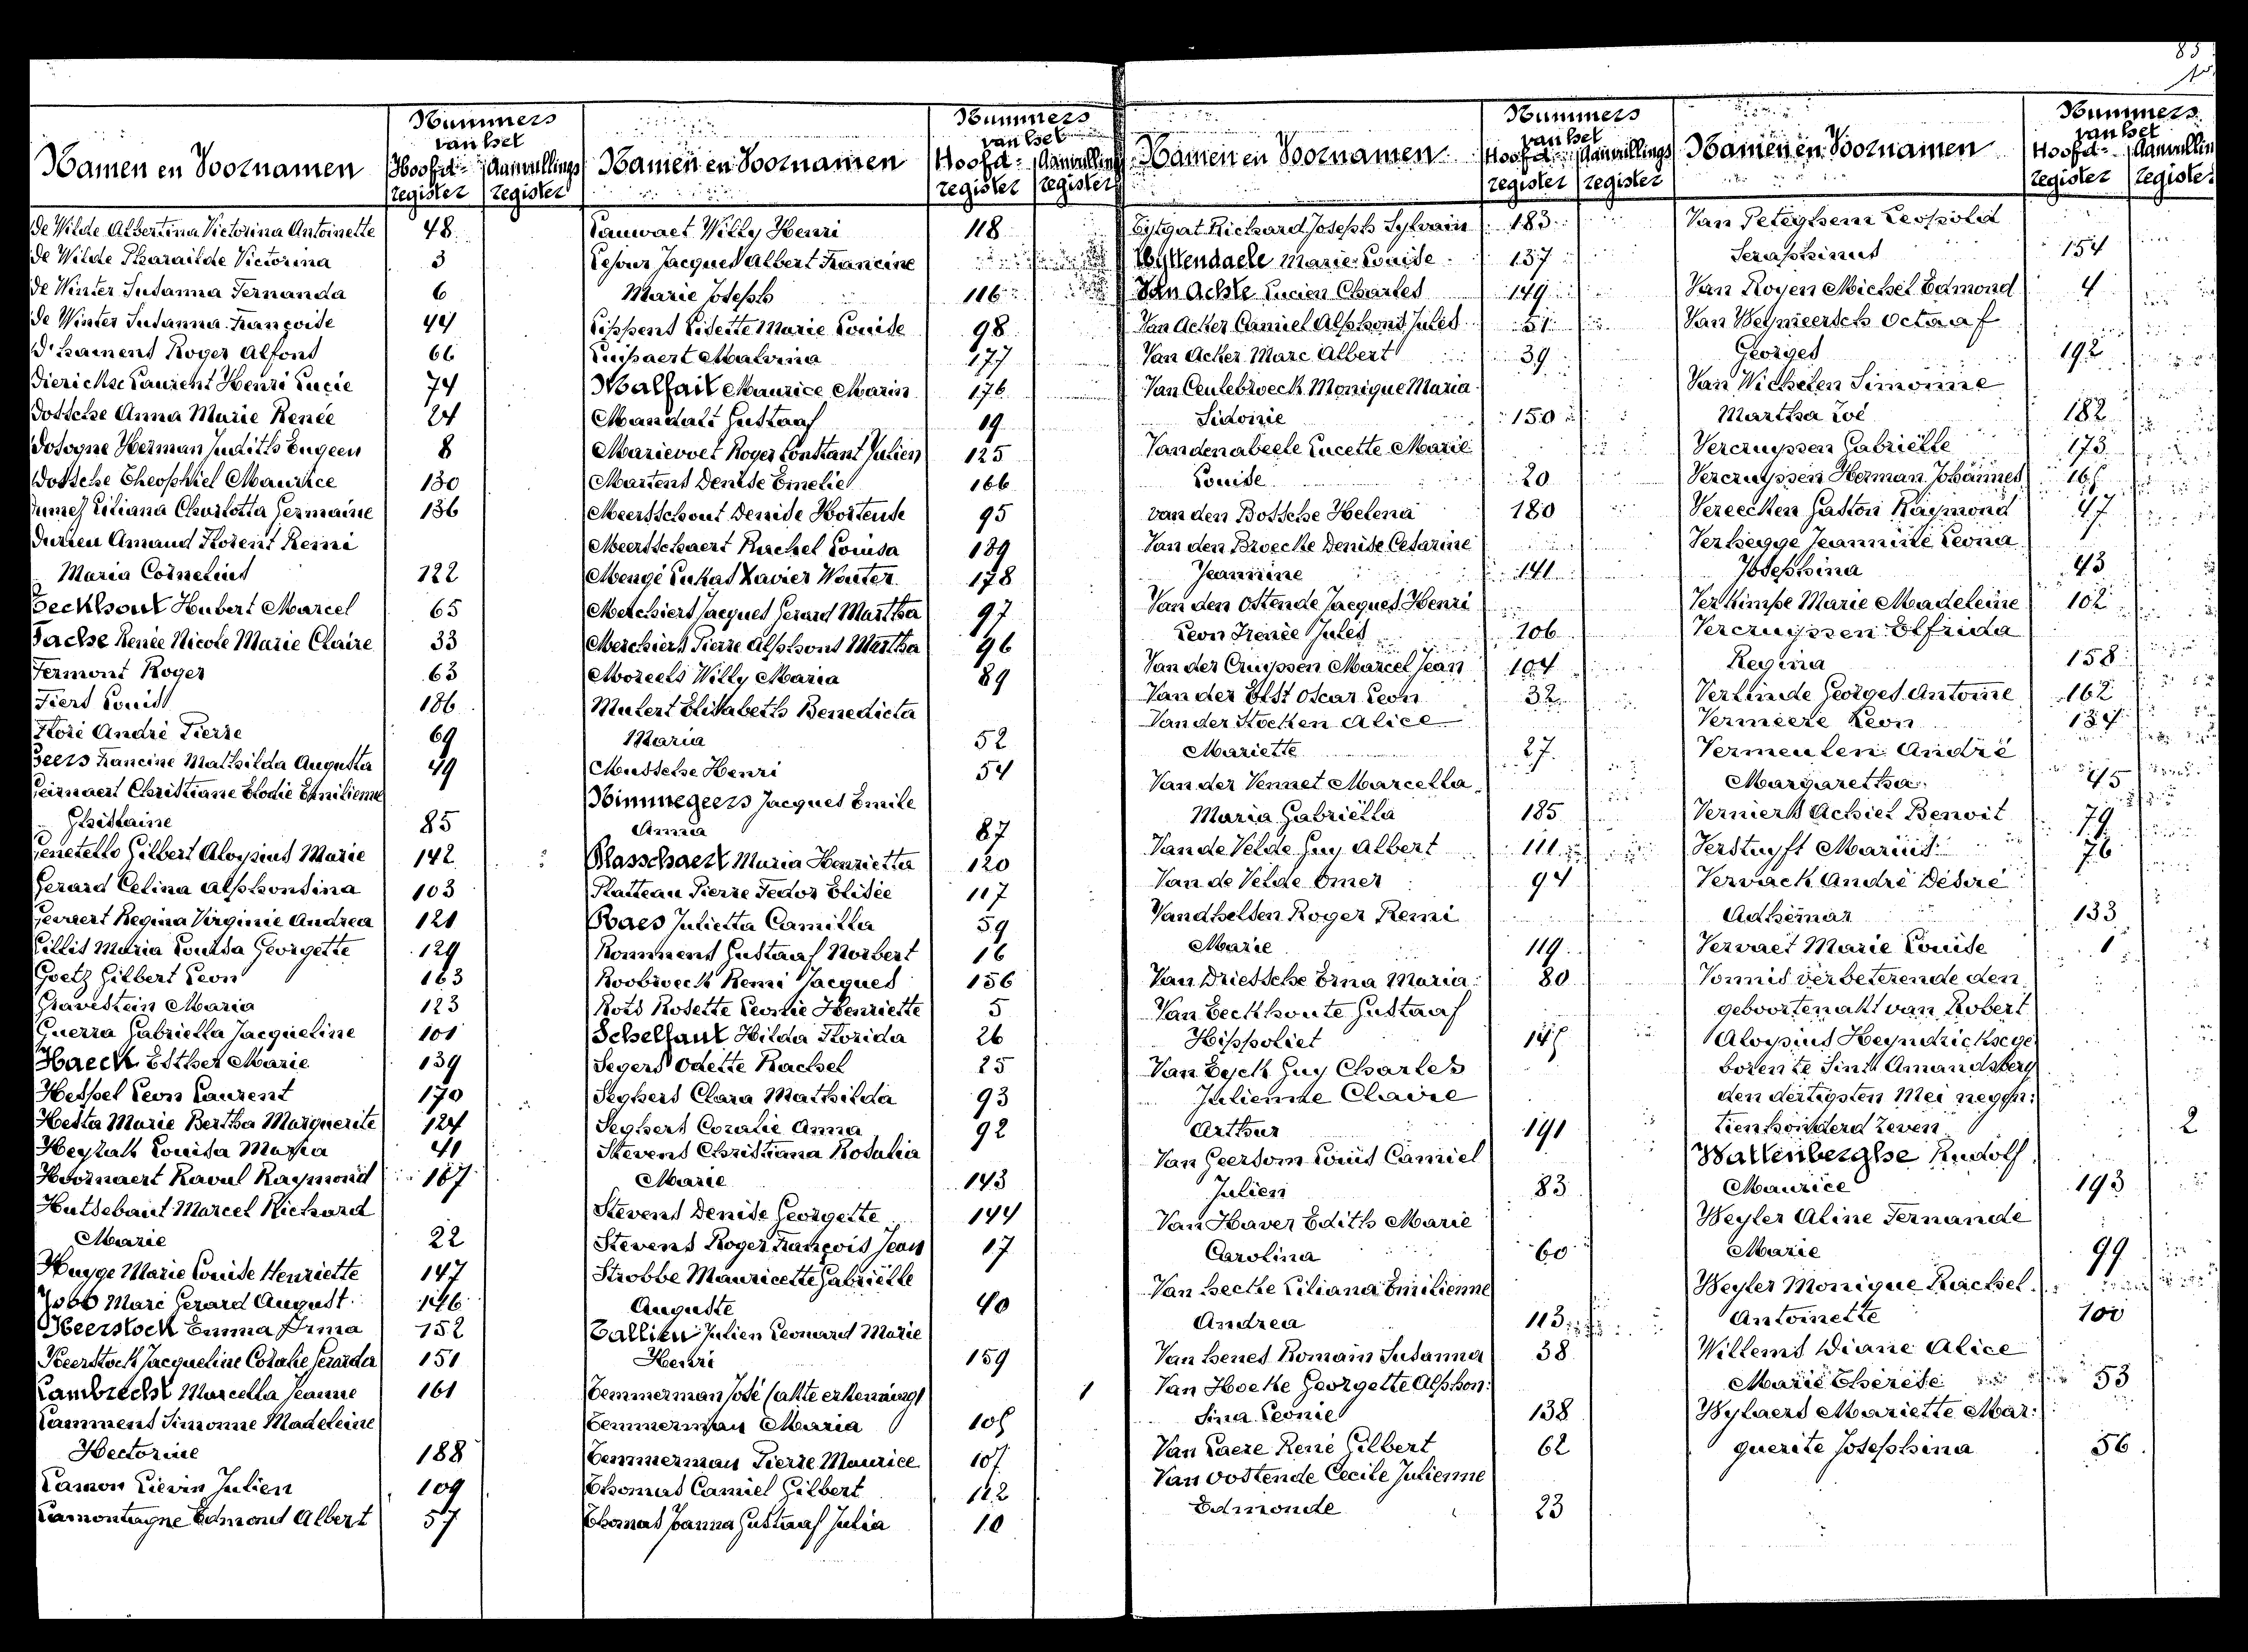 85
Namen en Voornamen
Nummers
van het
Hoofd-
register
Aanvullings
register
de Wilde Albertina Victorina Antoinette 48
de Wilde Pharaïlde Victorina 3
de Winter Susanna Fernanda 6
de Winter Susanna Françoise 44
D'haenens Roger Alfons 66
Dierickx Laurent Henri Lucie 74
Dossche Anna Marie Renée 24
Dosogne Herman Judith Eugeen 8
Dossche Theophiel Maurice 130
Dumez Liliana Charlotta Germaine 136
Durieu Amand Florent Remi
Maria Cornelius 122
Eeckhout Hubert Marcel 65
Fache Renée Nicole Marie Claire 33
Fermont Roger 63
Fiers Louis 186
Floré André Pierre 69
Geers Francine Mathilda Augusta 49
Geirnaert Christiane Elodie Emilienne
Ghislaine 85
Genetello Gilbert Aloysius Marie 142
Gerard Celina Alphonsina 103
Gevaert Regina Virginie Andrea 121
Gillis Maria Louisa Georgette 129
Goetz Gilbert Leon 163
Gravestein Maria 123
Guerra Gabriella Jacqueline 101
Haeck Esther Marie 139
Hespel Leon Laurent 170
Hesta Marie Bertha Marguerite 124
Heyrath Louisa Maria 41
Hoornaert Raoul Raymond 167
Hutsebaut Marcel Richard
Marie 22
Huyge Marie Louise Henriette 147
Jobb Marc Gerard August 146
Keerstock Emma Irma 152
Keerstock Jacqueline Coralie Gerarda 151
Lambrecht Marcella Jeanne 161
Lammens Simonne Madeleine
Hectorine 188
Lamon Lievin Julien 109
Lamontagne Edmond Albert 57
Namen en Voornamen
Nummers
van het
Hoofd-
register
Aanvulling
register
Lauwaet Willy Henri 118
Lejour Jacques Albert Francine
Marie Joseph 116
Lippens Lisette Marie Louise 98
Luijpaert Malvina 177
Malfait Maurice Marin 176
Mandali Gustaaf 19
Marievoet Roger Constant Julien 125
Martens Denise Emelie 166
Meersschout Denise Hortense 95
Meersschaert Rachel Louisa 189
Mengé Lukas Xavier Wouter 178
Merchiers Jacques Gerard Martha 97
Merchiers Pierre Alphons Martha 96
Moreels Willy Maria 89
Mulert Elisabeth Benedicta
Maria 52
Mussche Henri 54
Nimmegeers Jacques Emile
Anna 87
Plasschaert Maria Henrietta 120
Platteau Pierre Fedor Elisée 117
Raes Julietta Camilla 59
Rommens Gustaaf Norbert 16
Roobroeck Remi Jacques 156
Rots Rosette Leonie Henriette 5
Schelfaut Hilda Florida 26
Segers Odette Rachel 25
Seghers Clara Mathilda 93
Seghers Coralie Anna 92
Stevens Christiana Rosalia
Marie 143
Stevens Denise Georgette 144
Stevens Roger François Jean 17
Strobbe Mauricette Gabriëlle
Auguste 40
Tallieu Julien Leonard Marie
Henri 159
Temmerman José (akte erkenning) 1
Temmerman Maria 105
Temmerman Pierre Maurice 107
Thomas Camiel Gilbert 112
Thomas Joanna Gustaaf Julia 10
Namen en Voornamen
Nummers
van het
Hoofd-
register
Aanvullings
register
Uytgat Richard Joseph Sylvain 183
Uyttendaele Marie Louise 137
Van Achte Lucien Charles 149
Van Acker Camiel Alphons Jules 51
Van Acker Marc Albert 39
Van Ceulebroeck Monique Maria
Sidonie 150
Vandenabeele Lucette Marie
Louise 20
van den Bossche Helena 180
Van den Broecke Denise Cesarine
Jeannine 141
Van den Ostende Jacques Henri
Leon Irenée Jules 106
Van der Cruyssen Marcel Jean 104
Van der Elst Oscar Leon 32
Van der Stocken Alice
Mariette 27
Van der Vennet Marcella
Maria Gabriëlla 185
Van de Velde Guy Albert 111
Van de Velde Omer 94
Vandhelsen Roger Remi
Marie 119
Van Driessche Erna Maria 80
Van Eeckhoute Gustaaf
Hippoliet 145
Van Eyck Guy Charles
Julienne Claire
Arthur 191
Van Geersom Louis Camiel
Julien 83
Van Haver Edith Marie
Carolina 60
Van hecke Liliana Emilienne
Andrea 113
Van henes Romain Susanna 38
Van Hoeke Georgette Alphon:
sina Leonie 138
Van Laere René Gilbert 62
Van Oostende Cecile Julienne
Edmonde 23
Namen en Voornamen
Nummers
van het
Hoofd-
register
Aanvullin
register
Van Peteghem Leopold
Seraphinus 154
Van Royen Michel Edmond 4
Van Weymeersch Octaaf
Georges 192
Van Wichelen Simonne
Martha Zoë 182
Vercruyssen Gabriëlle 173
Vercruyssen Herman Johannes 165
Vereecken Gaston Raymond 47
Verhegge Jeannine Leona
Josephina 43
Verkimpe Marie Madeleine 102
Vercruyssen Elfrida
Regina 158
Verlinde Georges Antoine 162
Vermeere Leon 134
Vermeulen André
Margaretha 45
Verniers Achiel Benoit 79
Verstuyft Marius 76
Vervack André Désiré
Adhemar 133
Vervaet Marie Louise 1
Vonnis verbeterende den
geboortenakt van Robert
Aloysius Heyndrickx ge
boren te Sint Amandsberg
den dertigsten Mei negen:
tienhonderd zeven 2
Wallenberghe Rudolf
Maurice 193
Weyler Aline Fernande
Marie 99
Weyler Monique Rachel
Antoinette 100
Willems Diane Alice
Marie Thérèse 53
Wylaers Mariette Mar:
guerite Josephina 56